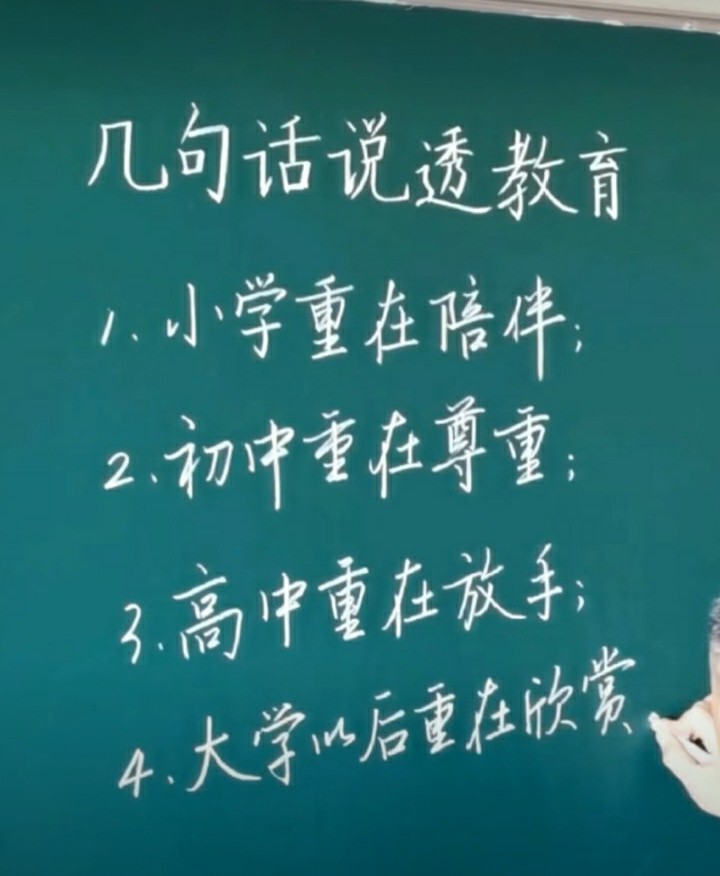 几句话说透教育
1.小学重在陪伴;
2.初中重在尊重;
3.高中重在放手;
4.大学以后重在欣赏